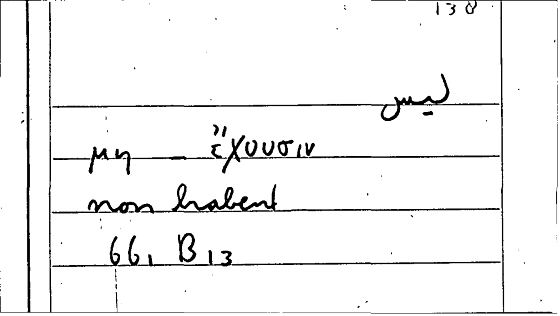 138
ليس
μη — ἔχουσιν
non habent
66, B13